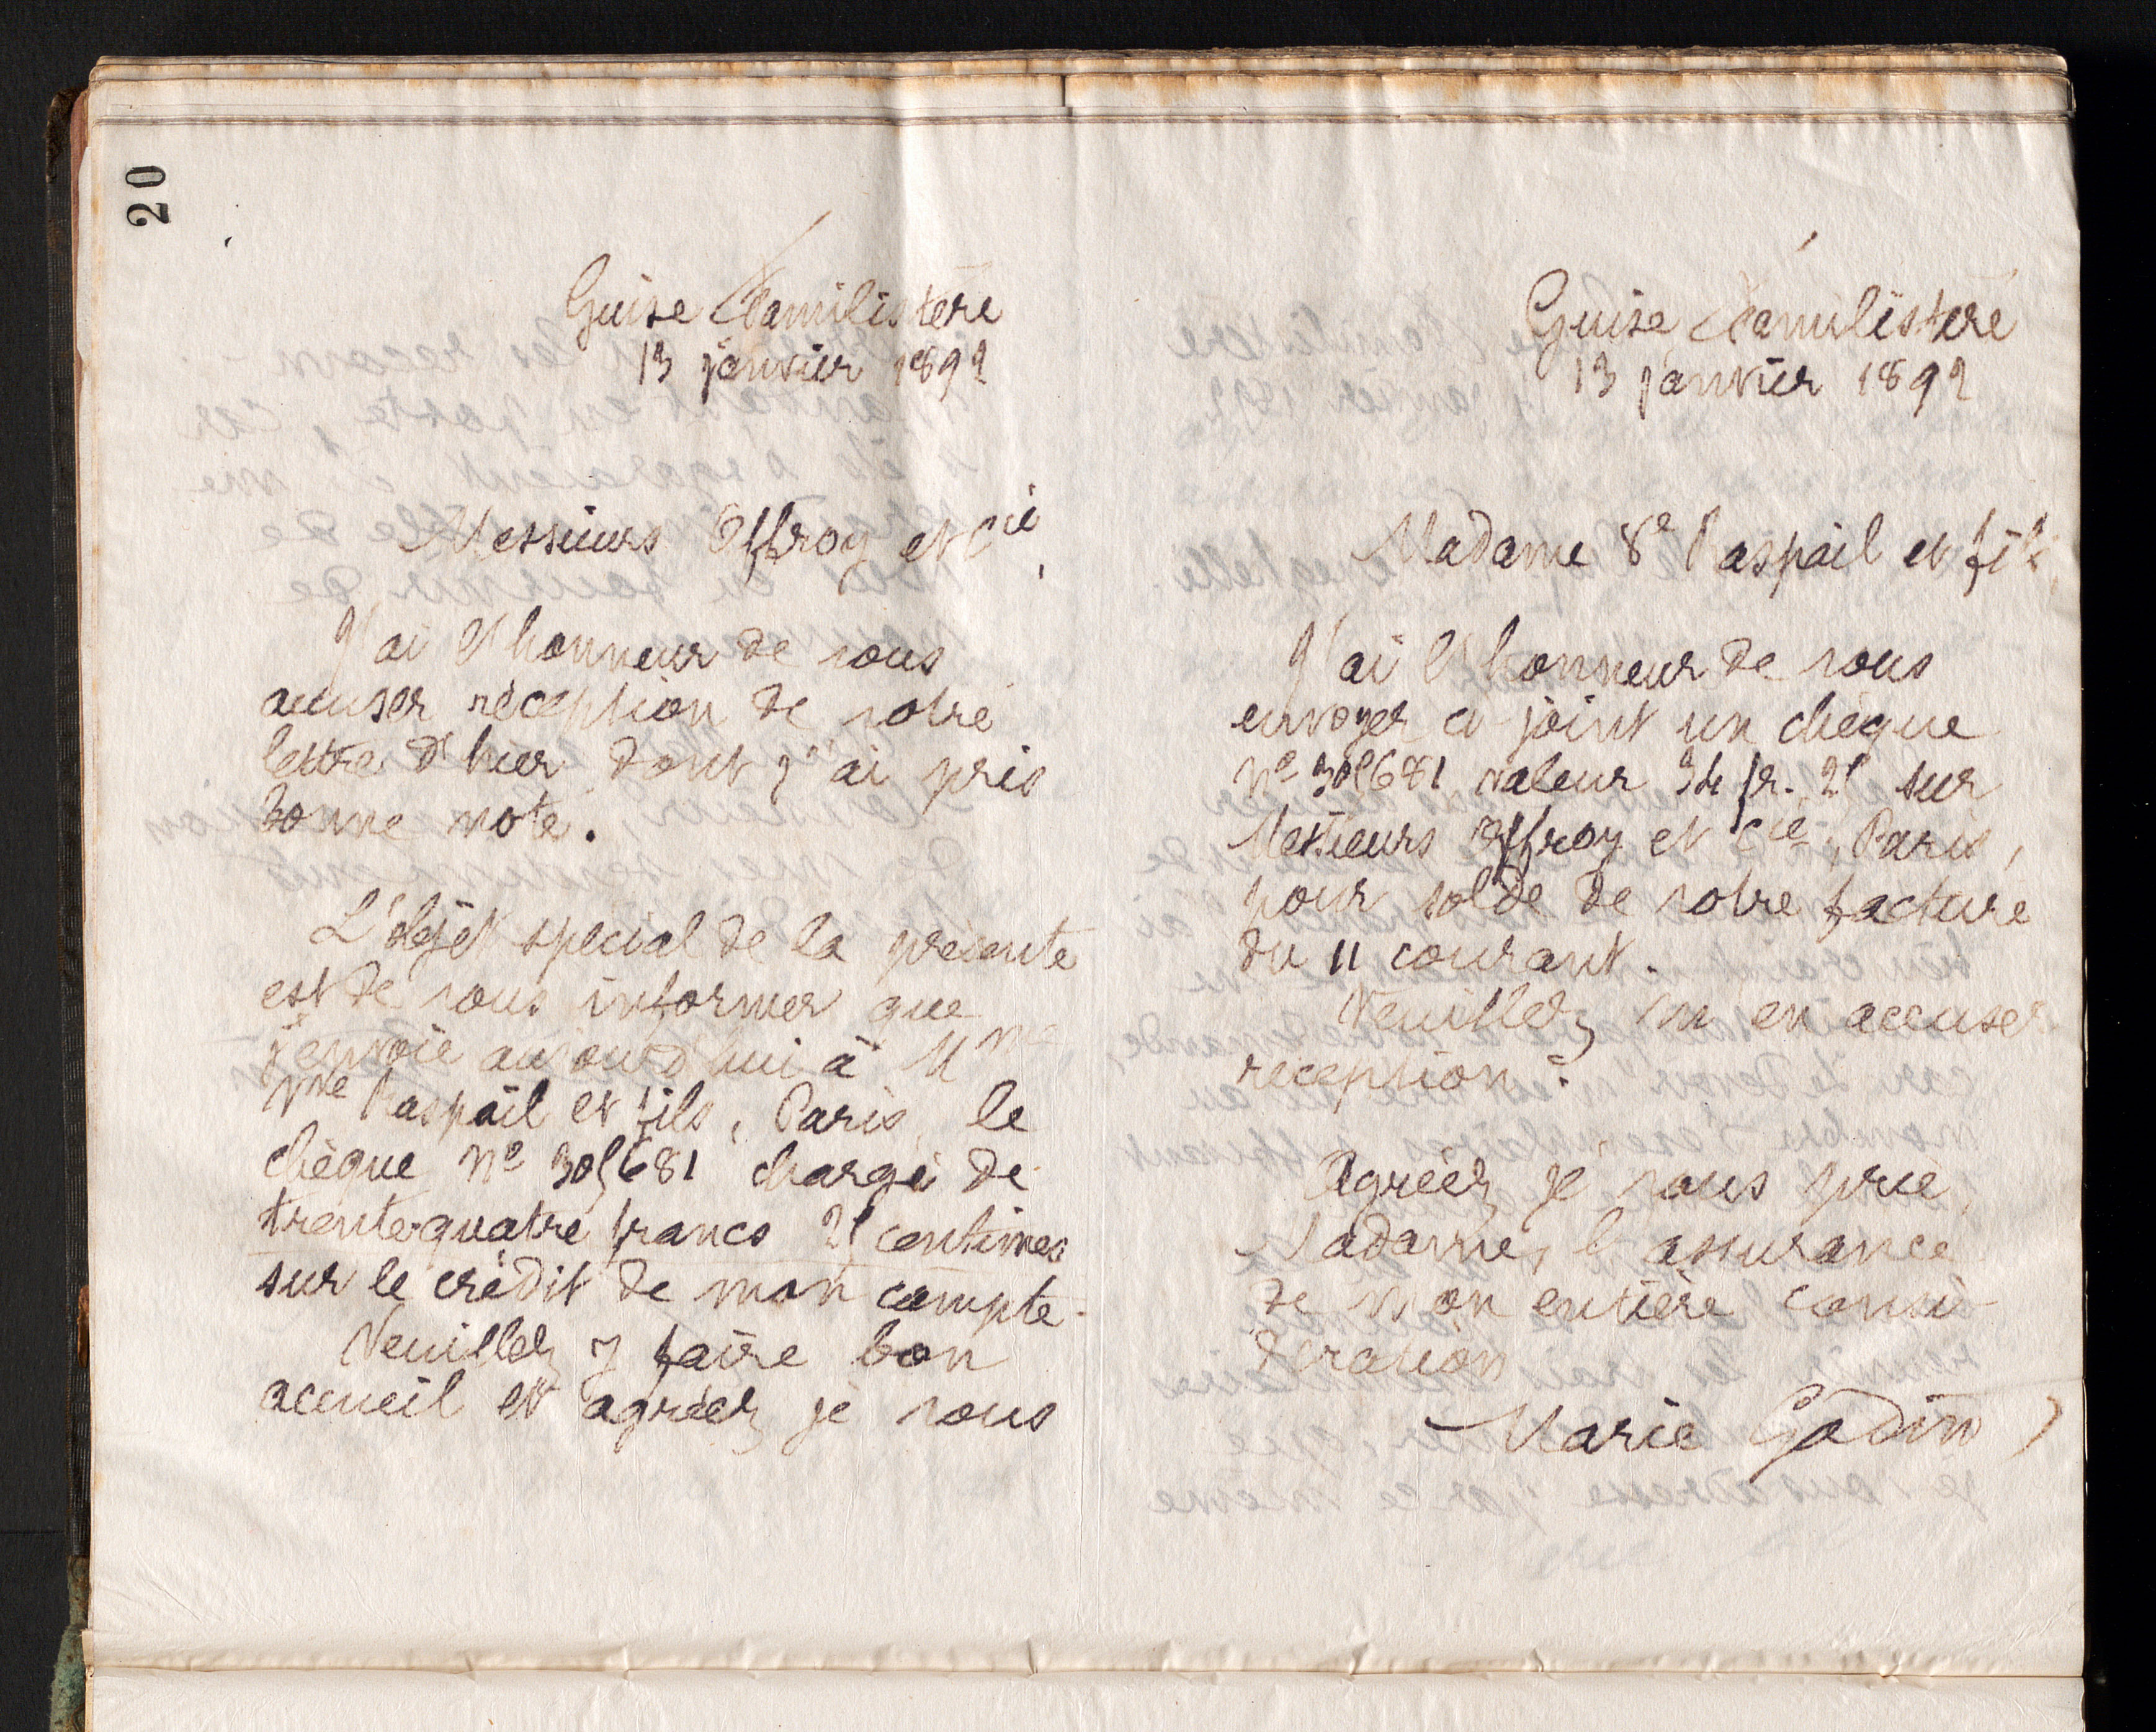 20
Guise Familistère
13 janvier 1892
Messieurs Offroy et Cie,
J'ai l'honneur de vous
accuser réception de votre
lettre d'hier dont j'ai pris
bonne note.
L'objet spécial de la présente
est de vous informer que
j'envoie aujourd'hui à Mme
Vve Raspail et fils, Paris, le
chèque No 305681 chargé de
trente-quatre francs 25 centimes
sur le crédit de mon compte.
Veuillez y faire bon
accueil et agréez je vous
Guise Familistère
13 janvier 1892
Madame Ve Raspail et fils,
J'ai l'honneur de vous
envoyer ci-joint un chèque
No 305681, valeur 34 fr. 25 sur
Messieurs Offroy et Cie, Paris,
pour solde de votre facture
du 11 courant.
Veuillez m'en accuser
réception.
Agréez je vous prie,
Madame, l'assurance
de mon entière consi-
dération
Marie Godin